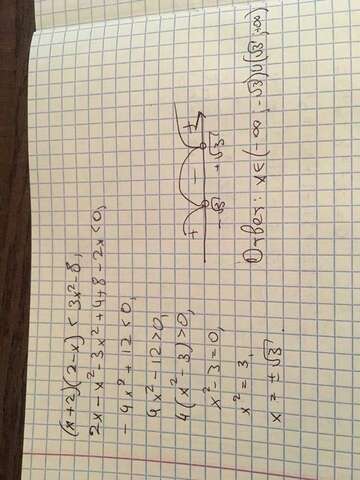 (x+2)(2-x) < 3x²-8,
2x-x²-3x²+4+8-2x<0,
-4x²+12<0,
4x²-12>0,
4(x²-3)>0,
x²-3=0,
x²=3,
x=±√3.
+ - +
-√3 +√3
Ответ: x∈(-∞;-√3)∪(√3;+∞)